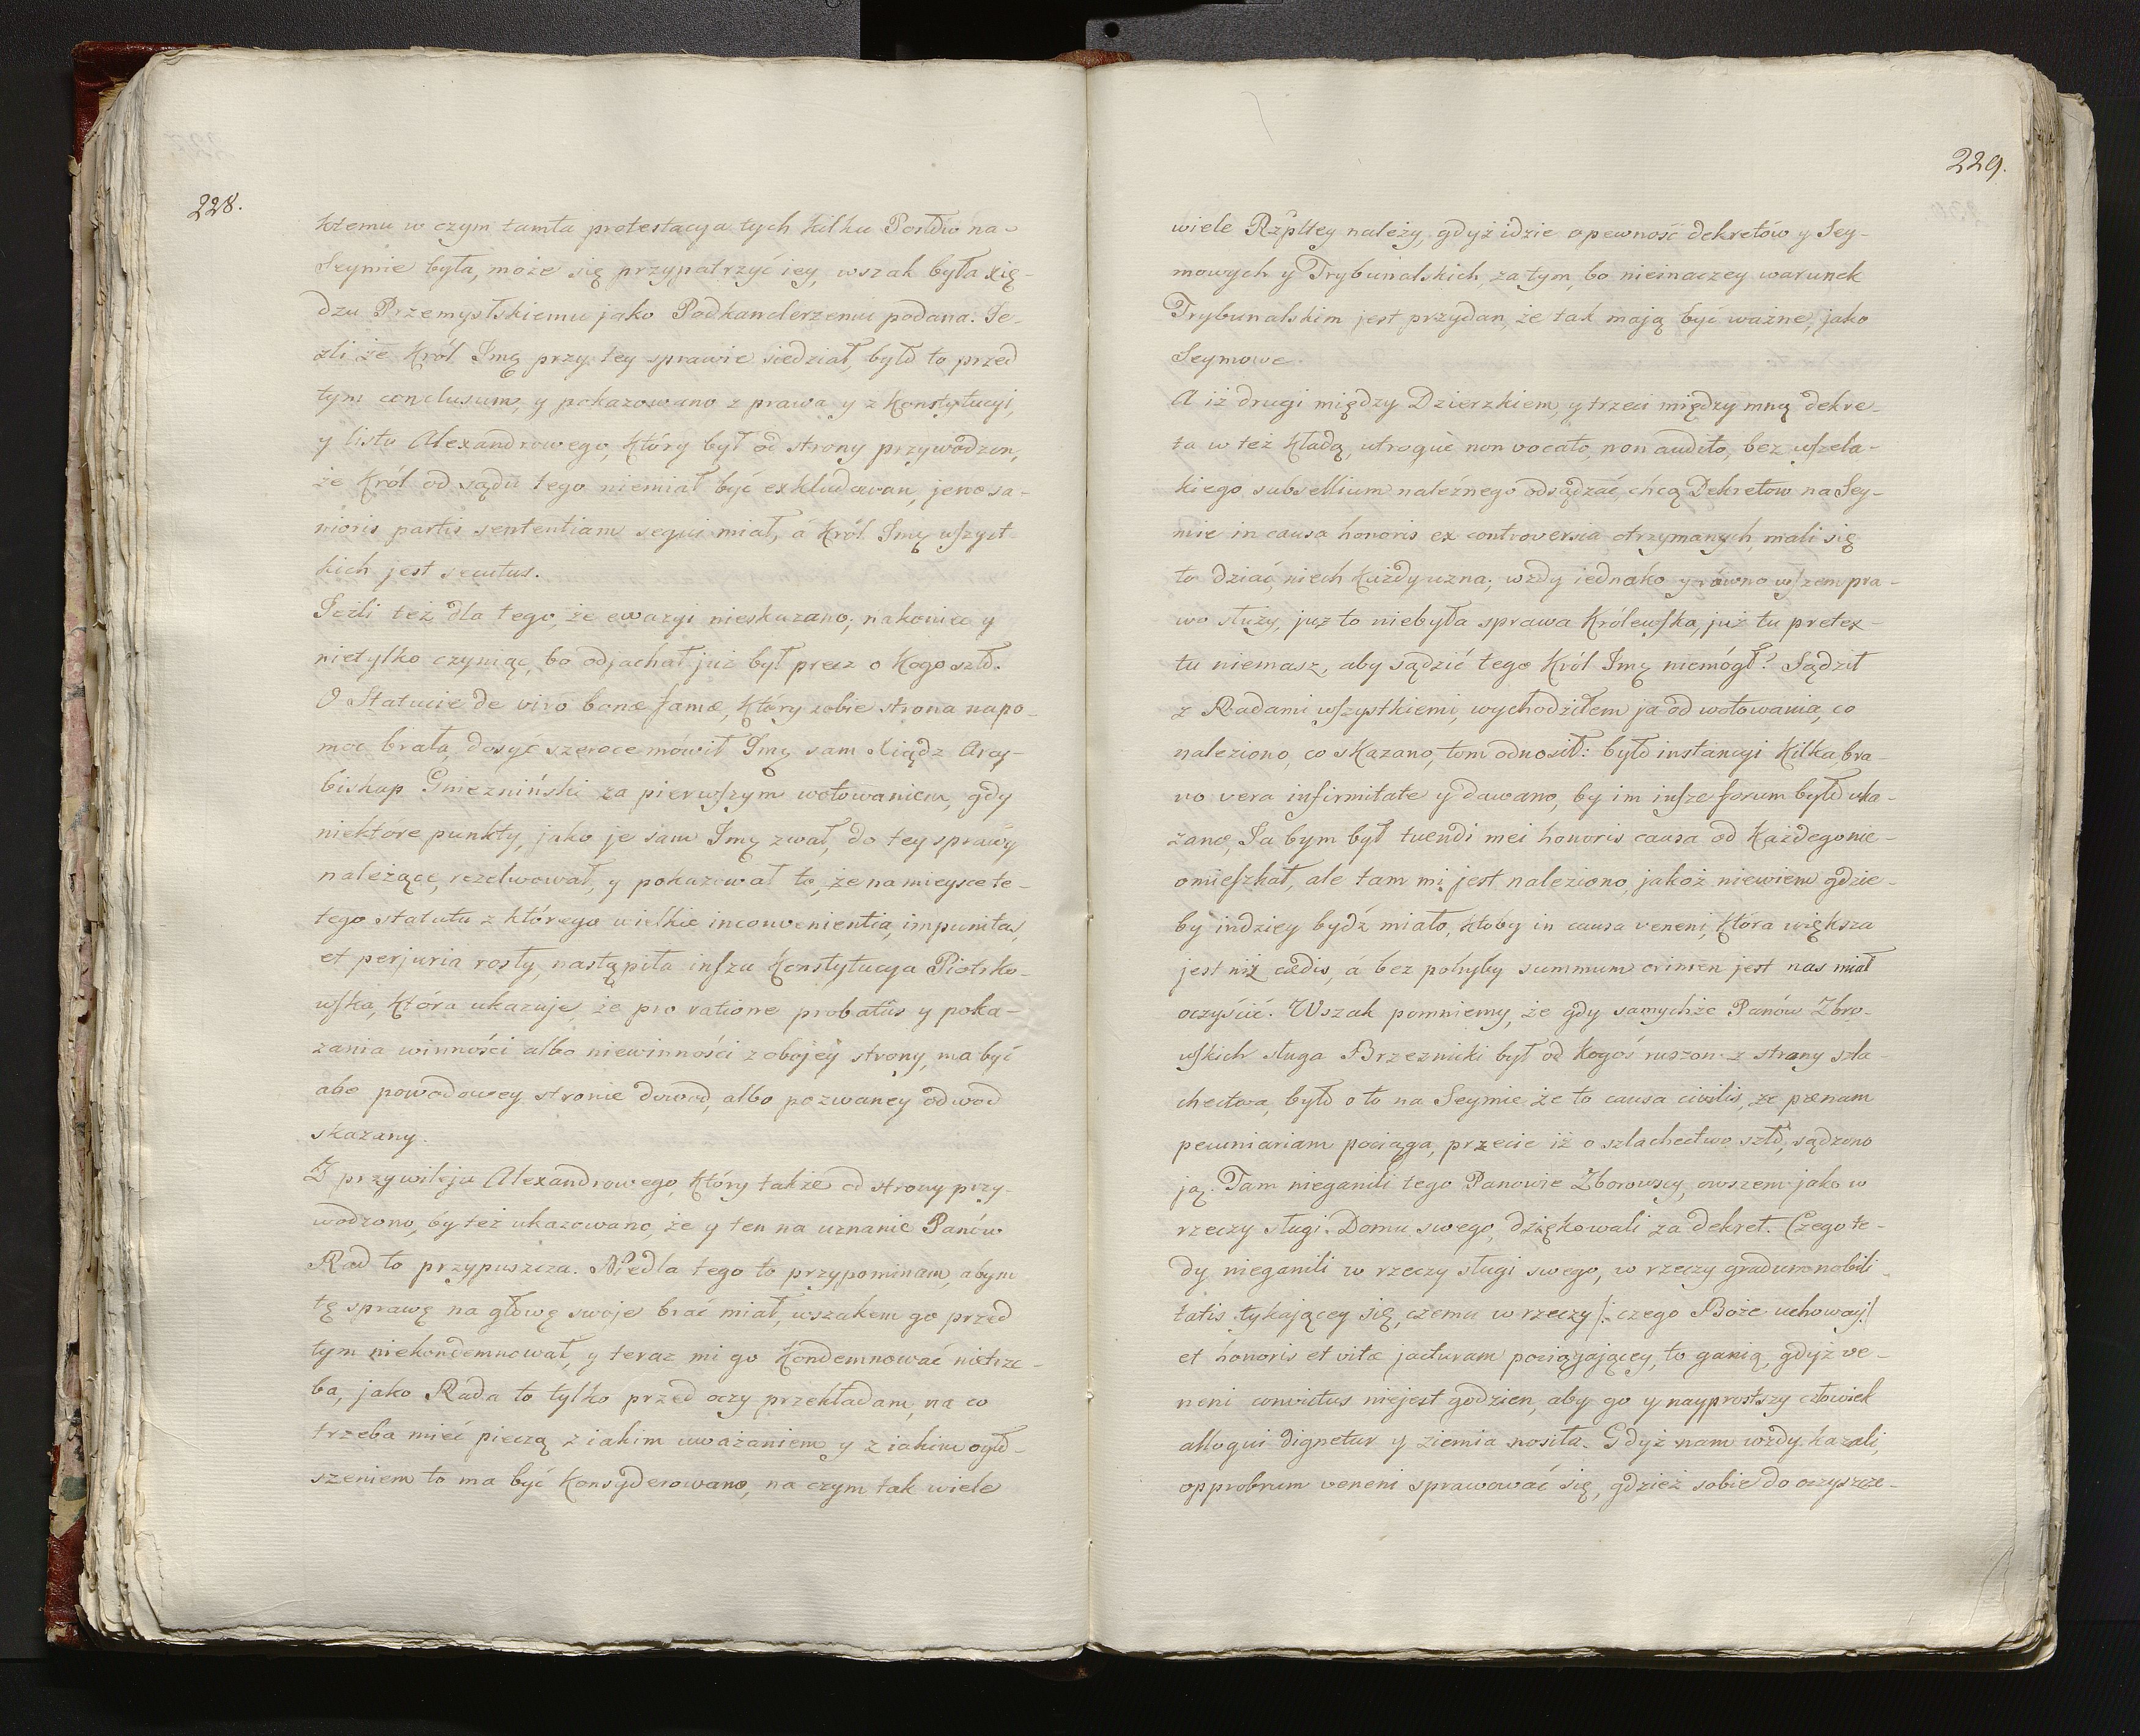 228.
ktemu w czym tamta protestacya tych kilku Posłów na
Seymie była, może się przypatrzyć iey, wszak była xię-
dzu Przemysłskiemu jako Podkanclerzemu podana. Je-
żli że Król Jmę przy tey sprawie siedział, było to przed
tym conclusum, y pokazowano z prawa y z Konstytucyi,
y listu Alexandrowego, który był od strony przywodzon,
że Król od sądu tego niemiał być exkludowan, jeno sa-
nioris partis sententiam sequi miał, á Król Jmę wszyst-
kich jest secutus.
Jeżli też dla tego, że ewazyi nieskazano; nakoniec y
nietylko czyniąc, bo odjachał już był precz o kogo szło.
O Statucie de viro bonæ famæ, który sobie strona na po-
moc brała, dosyć szeroce mówił Jmę sam Xiądz Arcy-
biskup Gnieźniński za pierwszym wotowaniem, gdy
niektóre punkty, jako je sam Jmę zwał, do tey sprawy
należące, rezolwował, y pokazował to, że na mieysce te-
tego statutu z którego wielkie inconvenientia, impunitas,
et perjuria rosły, nastąpiła insza Konstytucya Piotrko-
wska, która ukazuje, że pro ratione probatûs y poka-
zania winności albo niewinności z obojey strony, ma być
abo powodowey stronie dowod, albo pozwaney odwod
skazany.
Z przywileju Alexandrowego, który także od strony przy-
wodzono, by też ukazowano, że y ten na uznanie Panów
Rad to przypuszcza. Niedla tego to przypominam, abym
tę sprawę na głowę swoje brać miał, wszakem go przed
tym niekondemnował, y teraz mi go kondemnować nietrze-
ba, jako Rada to tylko przed oczy przekładam, na co
trzeba mieć pieczą z iakim uważaniem y z iakim ogło-
szeniem to ma być konsyderowano, na czym tak wiele
229.
wiele Rzpltey należy, gdyż idzie o pewność dekretów y Sey-
mowych y Trybunalskich, za tym, bo nieinaczey warunek
Trybunalskim jest przydan, że tak mają być ważne, jako
Seymowe.
A iż drugi między Dzierzkiem, y trzeci między mną dekre-
ta w też kładą, utroque non vocato, non audito, bez wszela-
kiego subsellium należnego odsądzać chcą Dekretow na Sey-
mie in causa honoris ex controversia otrzymanych, mali się
to dziać, niech każdy uzna; wżdy iednako y równo wszem pra-
wo służy, już to niebyła sprawa Królewska, już tu pretex-
tu niemasz, aby sądzić tego Król Jmę niemógł? Sądził
z Radami wszystkiemi, wychodziłem ja od wotowania, co
naleziono, co skazano, tom odnosił: było instancyi kilka, bra-
no vera infirmitate y dawano, by im insze forum było uka-
zane, Ja bym był tuendi mei honoris causa od każdego nie-
omieszkał, ale tam mi jest naleziono, jakoż niewiem gdzie-
by indziey bydź miało, ktoby in causa veneni, która większa
jest niż cædis, á bez pohyby summum crimen jest nas miał
oczyścić. Wszak pomniemy, że gdy samychże Panów Zbro-
wskich sługa Brzeznicki był od kogoś ruszon z strony szla-
chectwa, było o to na Seymie, że to causa civilis, że pænam
pecuniariam pociąga, przecie iż o szlachectwo szło, sądzono
ją. Tam nieganili tego Panowie Zborowscy, owszem jako w
rzeczy sługi Domu swego, dziękowali za dekret. Czego te-
dy nieganili w rzeczy sługi swego, w rzeczy gradum nobili-
tatis tykającey się, czemu w rzeczy /: czego Boże uchoway :/
et honoris et vitæ jacturam pociągającey, to ganią, gdyż ve-
neni convictus niejest godzien, aby go y nayprostszy człowiek
alloqui dignetur y ziemia nosiła. Gdyż nam wżdy kazali,
opprobrum veneni sprawować się, gdzież sobie do oczyszcze-